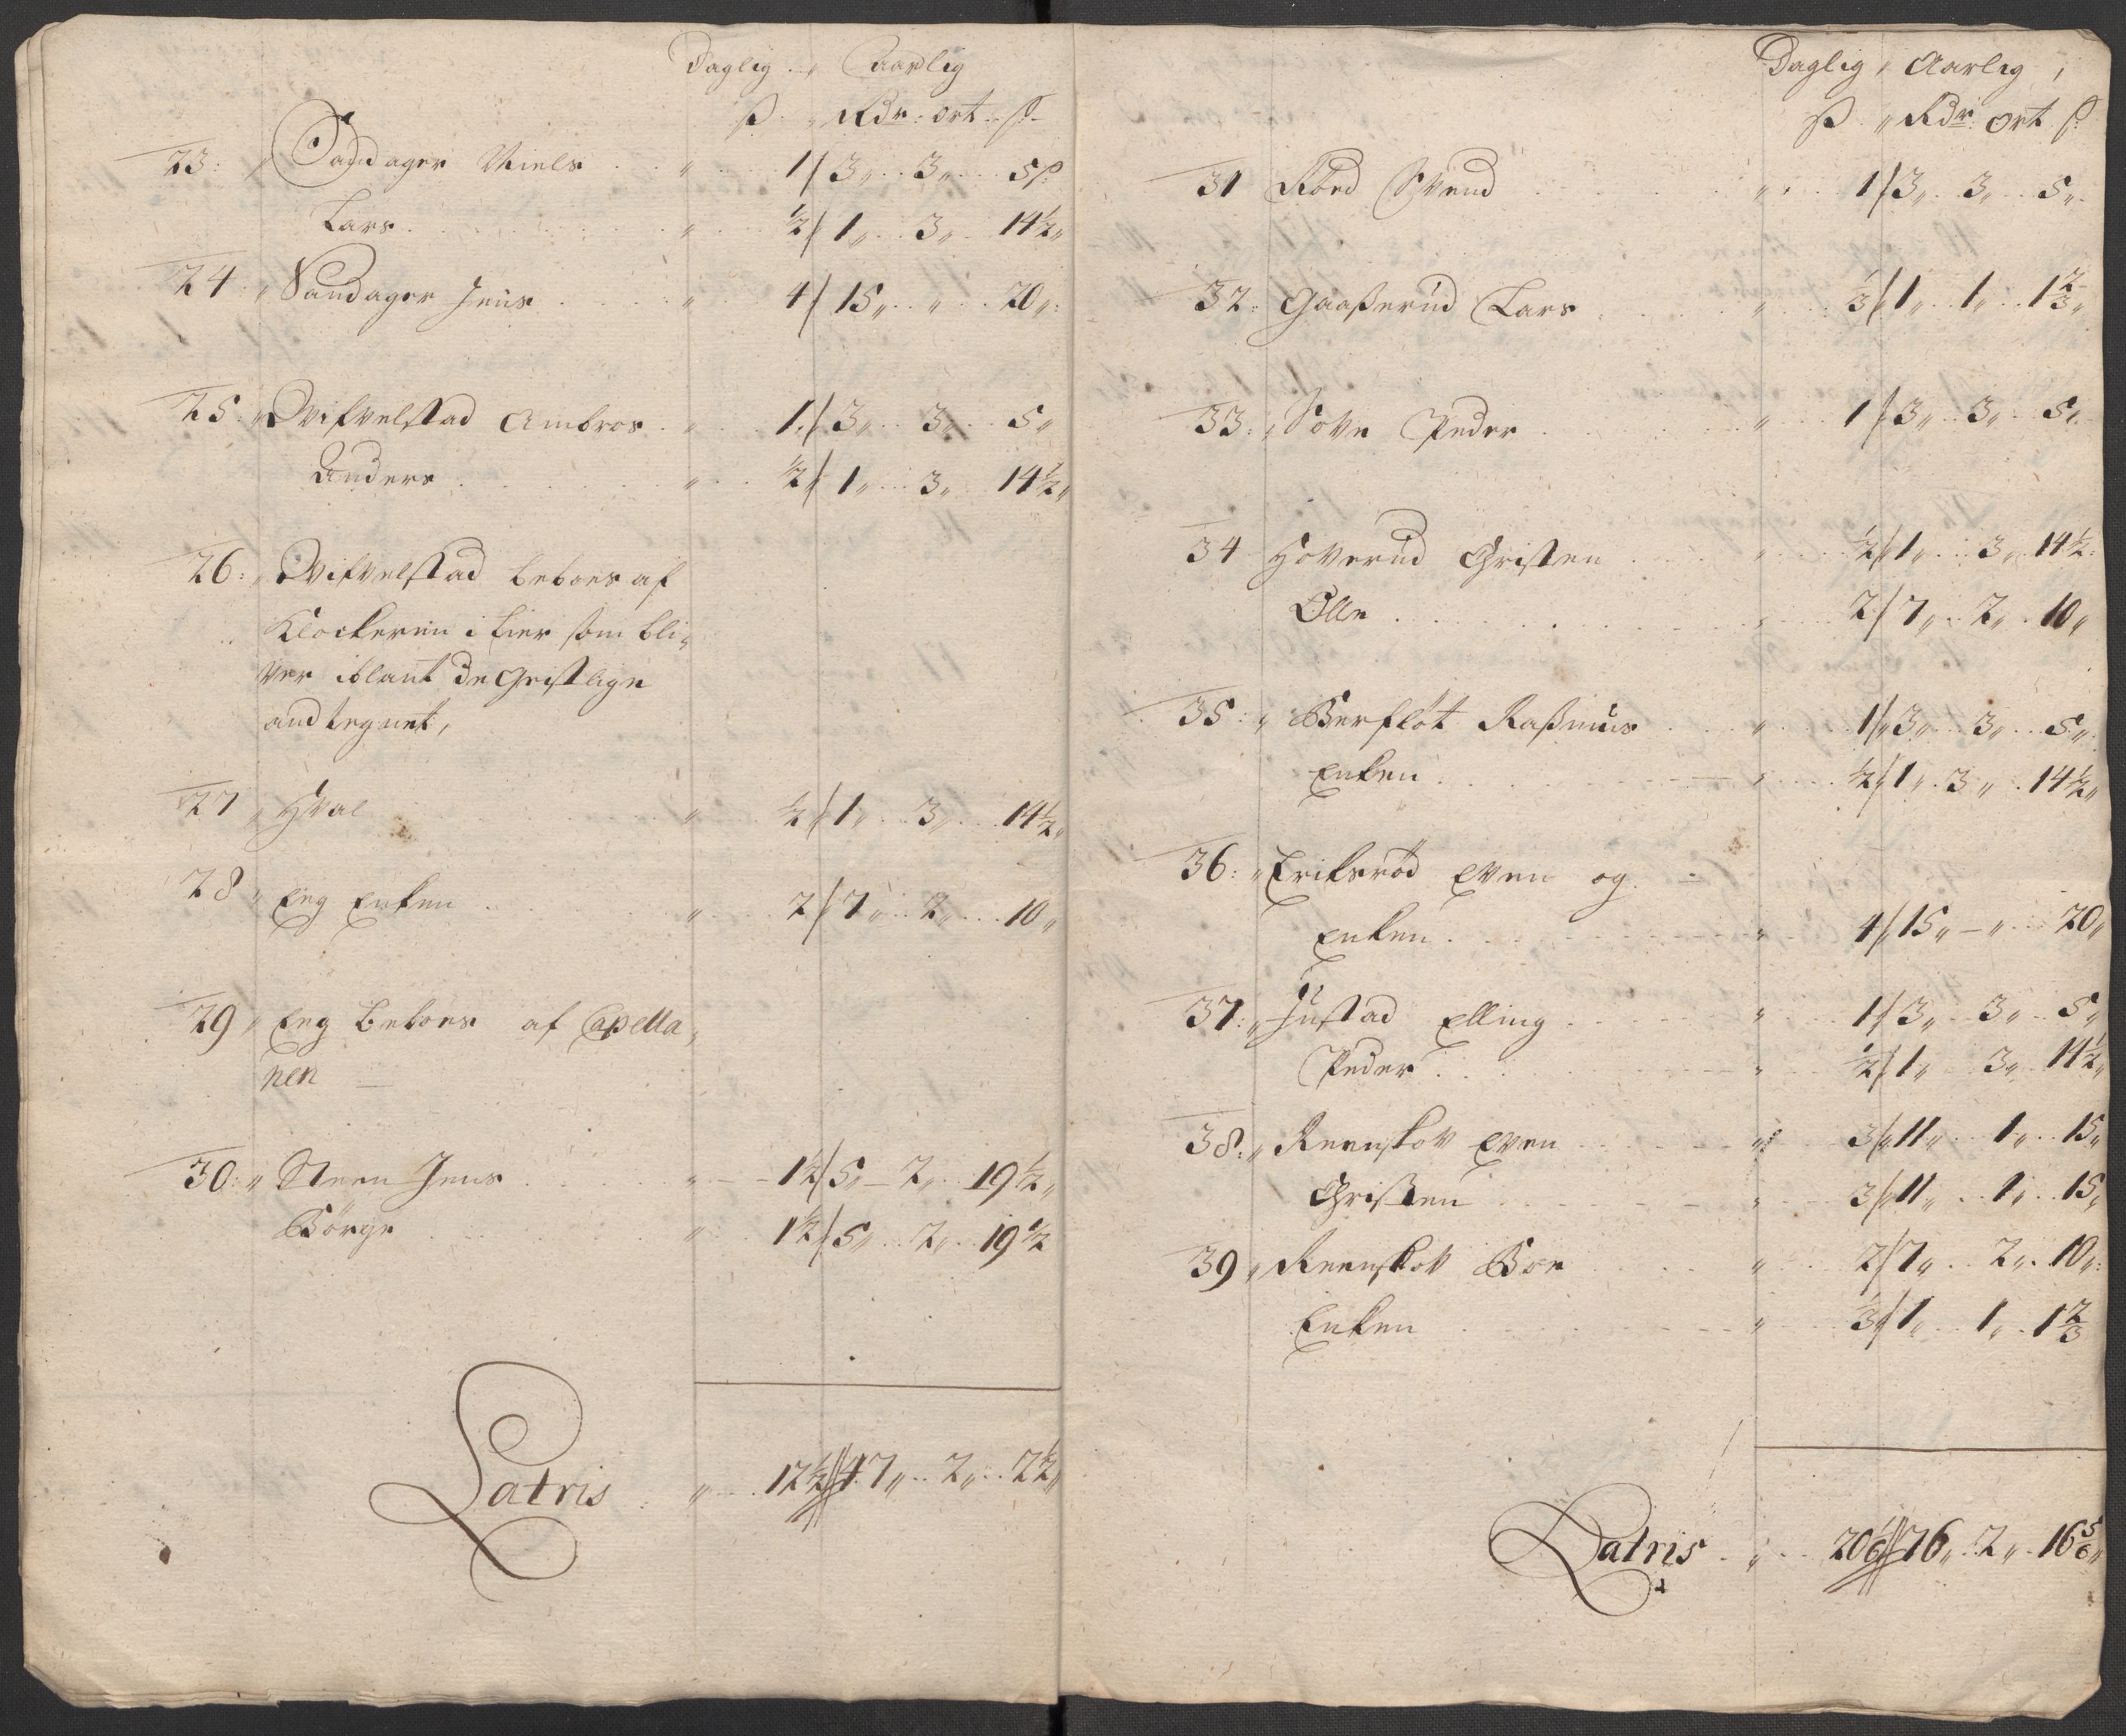 Daglig „ Aarlig
ß „ Rdr: ort „ ß
23: „ Sandager Niels „ 1/ 3„ 3„ 5ß
Lars „ ½/ 1„ 3„ 14½„
24 „ Sandager Jens „ 4/ 15„ „ 20„
25: „ Vifvelstad Ambros „ 1/ 3„ 3„ 5„
Anders „ ½/ 1„ 3„ 14½„
26: „ Vifvelstad beboes af
Klockeren i Lier som bli„
ver iblant de Geistlige
andtegnet,
27 „ Hval „ ½/ 1„ 3„ 14½„
28 „ Eeg Enken „ 2/ 7„ 2„ 10„
29 „ Eeg beboes af Capella„
nen
30: „ Steen Jens „ 1½/ 5„ 2„ 19½„
Börge „ 1½/ 5„ 2„ 19½
Latris „ 12½// 47„ 2„ 2½„
Daglig „ Aarlig,
ß „ Rdr ort ß
31 Röed Svend „ 1/ 3„ 3„ 5„
32: Gaaßerud Lars „ ⅓/ 1„ 1„ 1⅔„
33: „ Sove Peder „ 1/ 3„ 3„ 5„
34 Hoverud Christen „ ½/ 1„ 3„ 14½„
Olle „ 2/ 7„ 2„ 10„
35: „ Berflöt Raßmus „ 1/ 3„ 3„ 5„
Enken „ ½/ 1„ 3„ 14½„
36: „ Eriksröd Even og
Enken „ 4/ 15„ „ 20„
37: „ Justad Elling „ 1/ 3„ 3„ 5„
Peder „ ½/ 1„ 3„ 14½„
38: „ Reenskov Even „ 3/ 11„ 1„ 15„
Christen „ 3/ 11„ 1„ 15„
39 „ Reenskov Boe „ 2/ 7„ 2„ 10„
Enken „ ⅓/ 1„ 1„ 1⅔
Latris „ 20⅙// 76„ 2„ 16⅚„